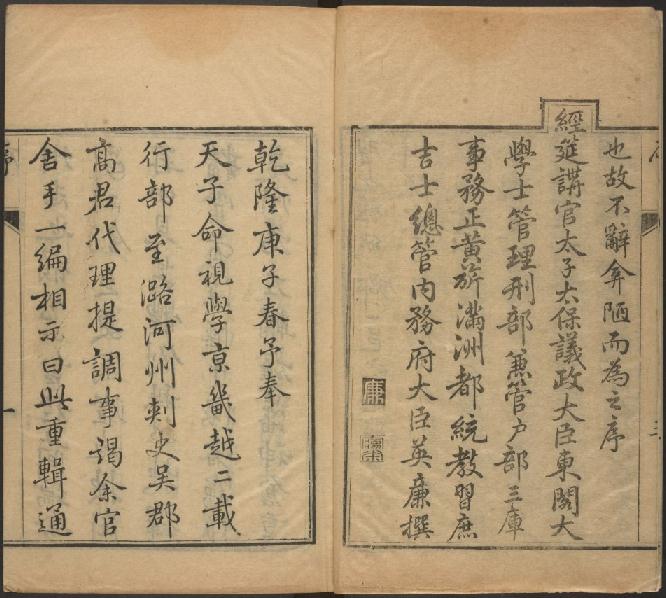 也故不辭弇陋而為之序
經筵講官太子太保議政大臣東閣大
學士管理刑部兼管户部三庫
事務正黃旂滿洲都統教習庶
吉士總管内務府大臣英廉撰
廉
序
三
乾隆庚子春予奉
天子命視學京畿越二載
行部至潞河州刺史吴郡
高君代理提調事謁余官
舍手一編相示曰此重輯通
序
一